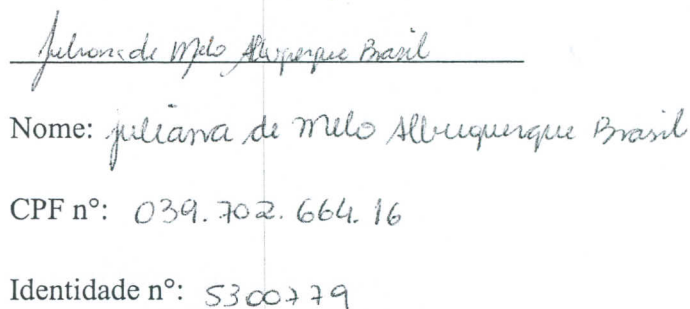 Juliana de Melo Albuquerque Brasil
Nome: juliana de Melo Albuquerque Brasil
CPF nº: 039.702.664.16
Identidade nº: 5300779